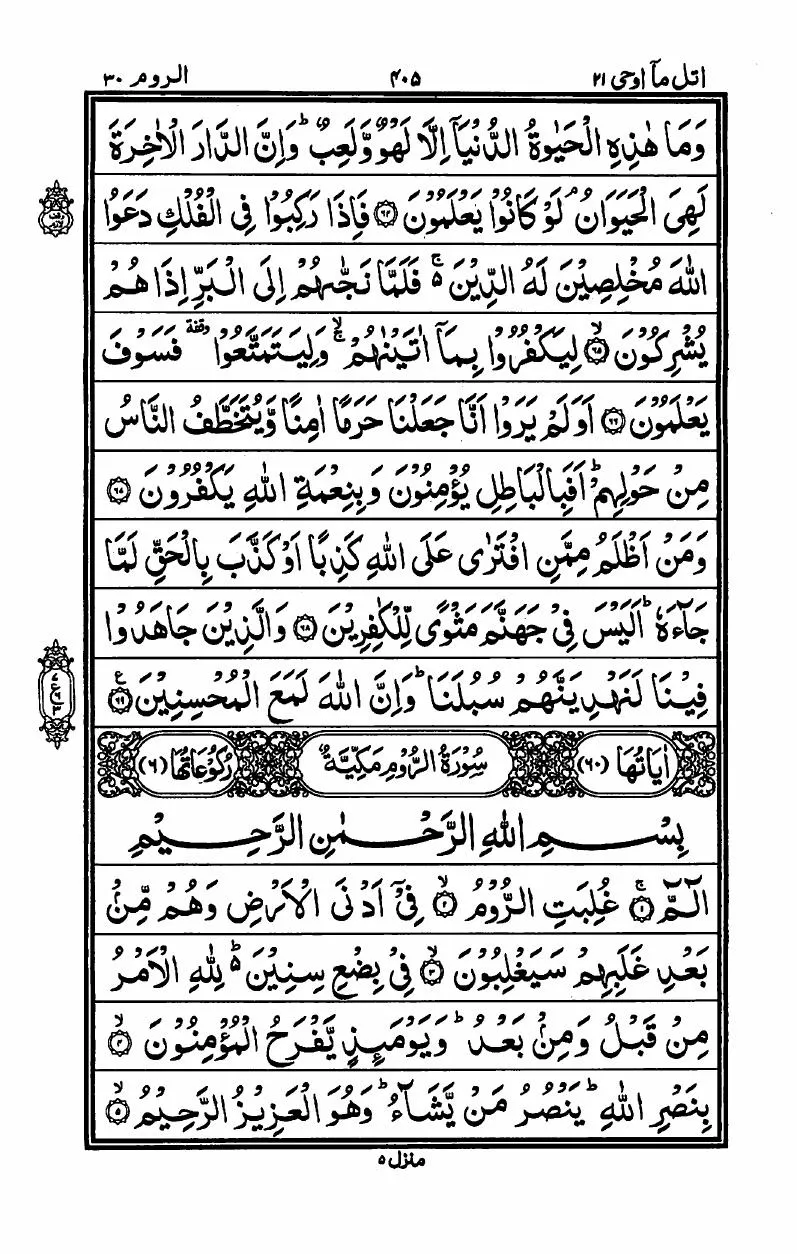 اتل مآ اوحی ۲۱
۴۰۵
الروم ۳۰
وَمَا هٰذِهِ الْحَيٰوةُ الدُّنْيَآ اِلَّا لَهْوٌ وَّلَعِبٌ ؕ وَاِنَّ الدَّارَ الْاٰخِرَةَ
لَهِىَ الْحَيَوَانُ ۘ لَوْ كَانُوْا يَعْلَمُوْنَ ﴿۶۴﴾ فَاِذَا رَكِبُوْا فِى الْفُلْكِ دَعَوُا
اللّٰهَ مُخْلِصِيْنَ لَهُ الدِّيْنَ ۚ۬ فَلَمَّا نَجّٰىهُمْ اِلَى الْبَرِّ اِذَا هُمْ
يُشْرِكُوْنَ ۙ﴿۶۵﴾ لِيَكْفُرُوْا بِمَآ اٰتَيْنٰهُمْ ۚۙ وَلِيَتَمَتَّعُوْا وقفة فَسَوْفَ
يَعْلَمُوْنَ ﴿۶۶﴾ اَوَلَمْ يَرَوْا اَنَّا جَعَلْنَا حَرَمًا اٰمِنًا وَّيُتَخَطَّفُ النَّاسُ
مِنْ حَوْلِهِمْ ؕ اَفَبِالْبَاطِلِ يُؤْمِنُوْنَ وَبِنِعْمَةِ اللّٰهِ يَكْفُرُوْنَ ﴿۶۷﴾
وَمَنْ اَظْلَمُ مِمَّنِ افْتَرٰى عَلَى اللّٰهِ كَذِبًا اَوْ كَذَّبَ بِالْحَقِّ لَمَّا
جَآءَهٗ ؕ اَلَيْسَ فِىْ جَهَنَّمَ مَثْوًى لِّلْكٰفِرِيْنَ ﴿۶۸﴾ وَالَّذِيْنَ جَاهَدُوْا
فِيْنَا لَنَهْدِيَنَّهُمْ سُبُلَنَا ؕ وَاِنَّ اللّٰهَ لَمَعَ الْمُحْسِنِيْنَ ﴿۶۹﴾ ع
اٰيَاتُهَا (۶۰) سُوْرَةُ الرُّوْمِ مَكِّيَّةٌ رُكُوْعَاتُهَا (۶)
بِسْمِ اللّٰهِ الرَّحْمٰنِ الرَّحِيْمِ
الٓمّٓ ۚ﴿۱﴾ غُلِبَتِ الرُّوْمُ ۙ﴿۲﴾ فِىْۤ اَدْنَى الْاَرْضِ وَهُمْ مِّنْۢ
بَعْدِ غَلَبِهِمْ سَيَغْلِبُوْنَ ۙ﴿۳﴾ فِىْ بِضْعِ سِنِيْنَ ؕ۬ لِلّٰهِ الْاَمْرُ
مِنْ قَبْلُ وَمِنْۢ بَعْدُ ؕ وَيَوْمَئِذٍ يَّفْرَحُ الْمُؤْمِنُوْنَ ۙ﴿۴﴾
بِنَصْرِ اللّٰهِ ؕ يَنْصُرُ مَنْ يَّشَآءُ ؕ وَهُوَ الْعَزِيْزُ الرَّحِيْمُ ۙ﴿۵﴾
منزل ۵